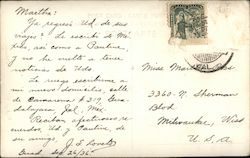 Martha:
Ya regresó Ud. de sus
viajes? Le escribí a Mé-
xico, así como a Pauline,
y no he vuelto a tener
noticias de Uds.
Le ruego escribirme a
mi nuevo domicilio calle
de Camarena # 219, Gua-
dalajara, Jal., Méx.
Reciban afectuosos re-
cuerdos, Ud. y Pauline, de
su amigo,
J. L.
Guad, Sep. 26/36.
Miss Martha
3360 N. Sherman
Blvd
Milwaukee, Wisc
U. S. A